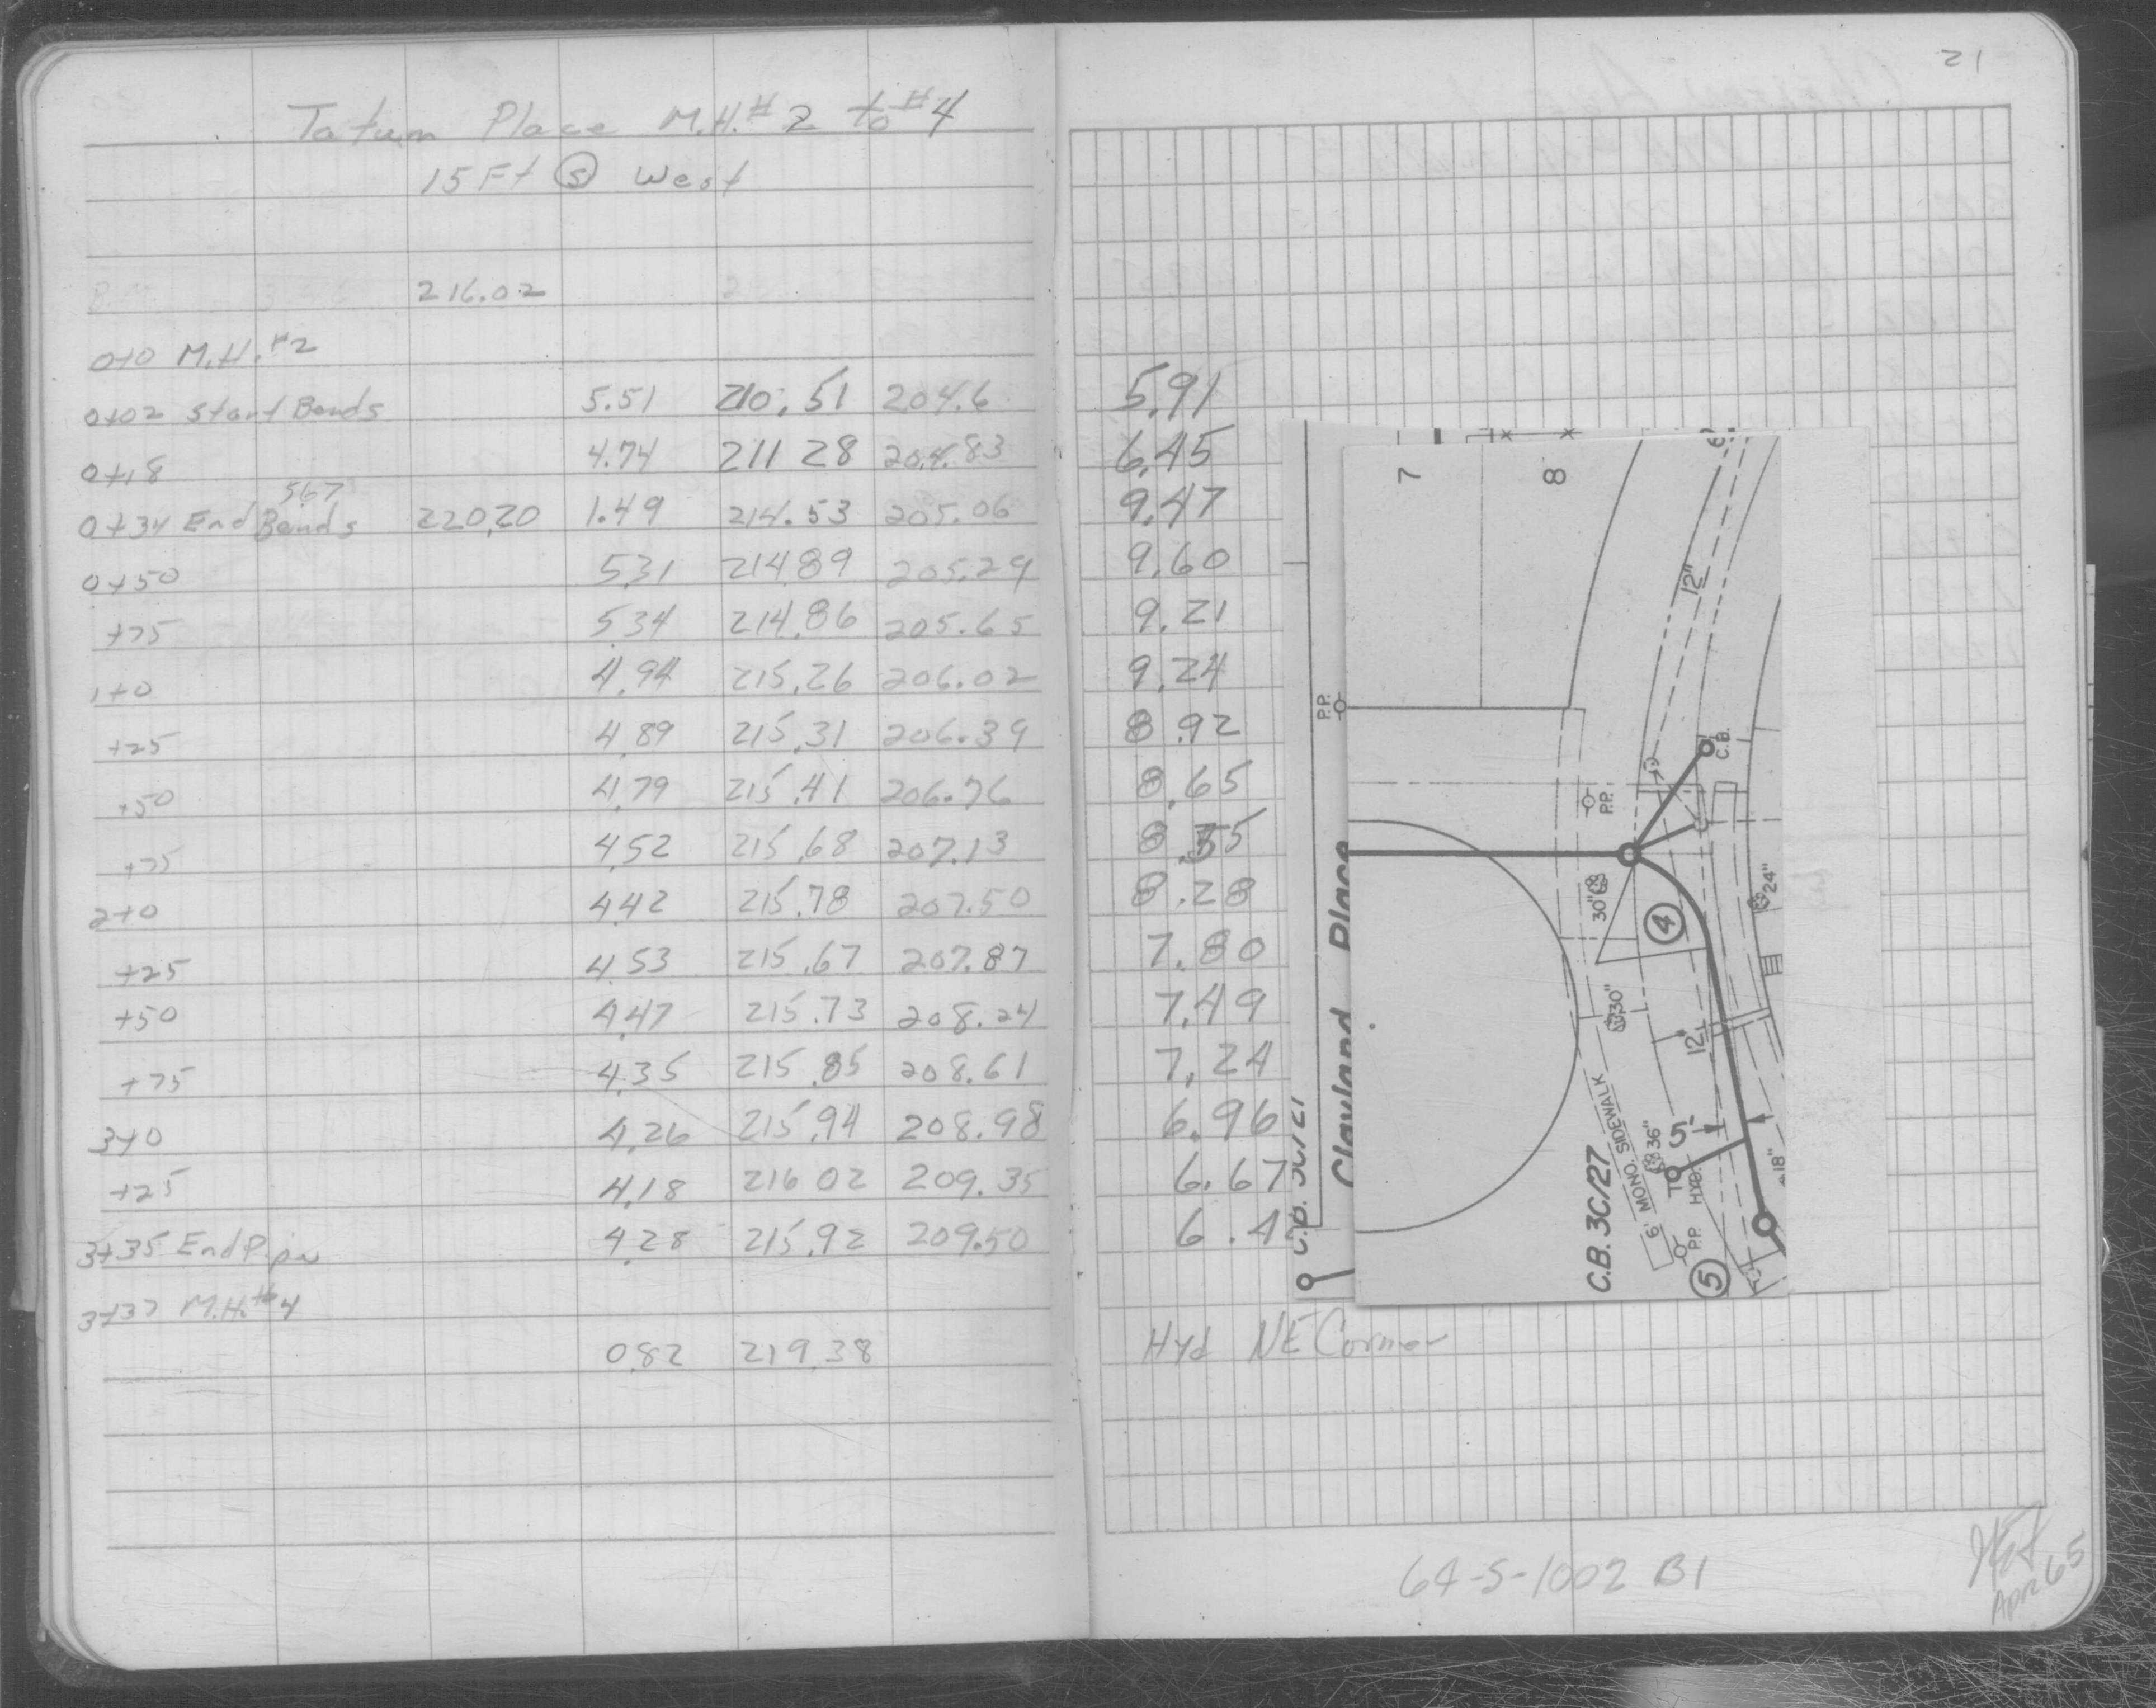 21
Tatum Place M.H.#2 to #4
15 Ft Ⓢ West
216.02
0+0 M.H.#2
0+02 Start Bends 5.51 210.51 204.6 5.91
0+18 4.74 211 28 204.83 6.45
567
0+34 End Bends 220.20 1.49 214.53 205.06 9.47
0+50 5.31 214.89 205.29 9.60
+75 5.34 214.86 205.65 9.21
1+0 4.94 215.26 206.02 9.24
+25 4.89 215.31 206.39 8.92
+50 4.79 215.41 206.76 8.65
+75 4.52 215.68 207.13 8.55
2+0 4.42 215.78 207.50 8.28
+25 4.53 215.67 207.87 7.80
+50 4.47 215.73 208.24 7.49
+75 4.35 215.85 208.61 7.24
3+0 4.26 215.94 208.98 6.96
+25 4.18 216 02 209.35 6.67
3+35 End Pipe 4.28 215.92 209.50 6.4
3+37 M.H.#4
0.82 219.38 Hyd NE Corner
7
8
12"
P.P.
C.B.
P.P.
Clayland Place
30"
4
24"
30"
12"
6' MONO. SIDEWALK
36"
5'
HYD.
18"
C.B. 3C/27
P.P.
5
64-S-1002 B1
Apr 65